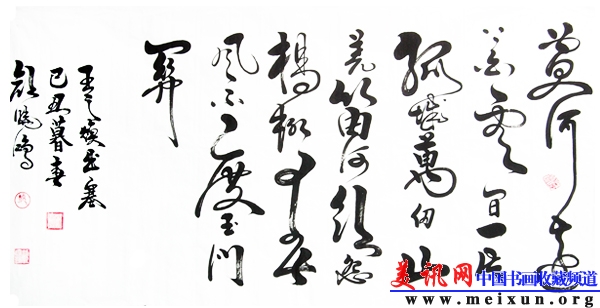 黄河遠
上白雲間一片
孤城萬仞山
羌笛何須怨
楊柳春
風不度玉門
關
王之渙出塞
己丑暮春
美讯网 中国书画收藏频道
www.meixun.org